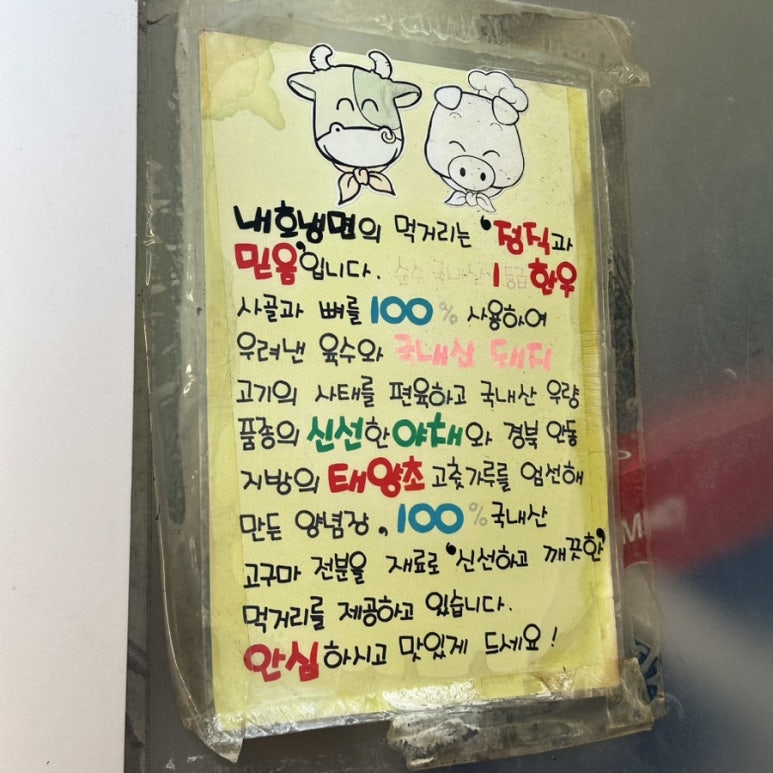 내호냉면의 먹거리는 '정직과
믿음'입니다. 순수 국내산 1등급 한우
사골과 뼈를 100% 사용하여
우려낸 육수와 국내산 돼지
고기의 사태를 편육하고 국내산 우량
품종의 신선한 야채와 경북 안동
지방의 태양초 고춧가루를 엄선해
만든 양념장, 100% 국내산
고구마 전분을 재료로 '신선하고 깨끗한'
먹거리를 제공하고 있습니다.
안심하시고 맛있게 드세요!